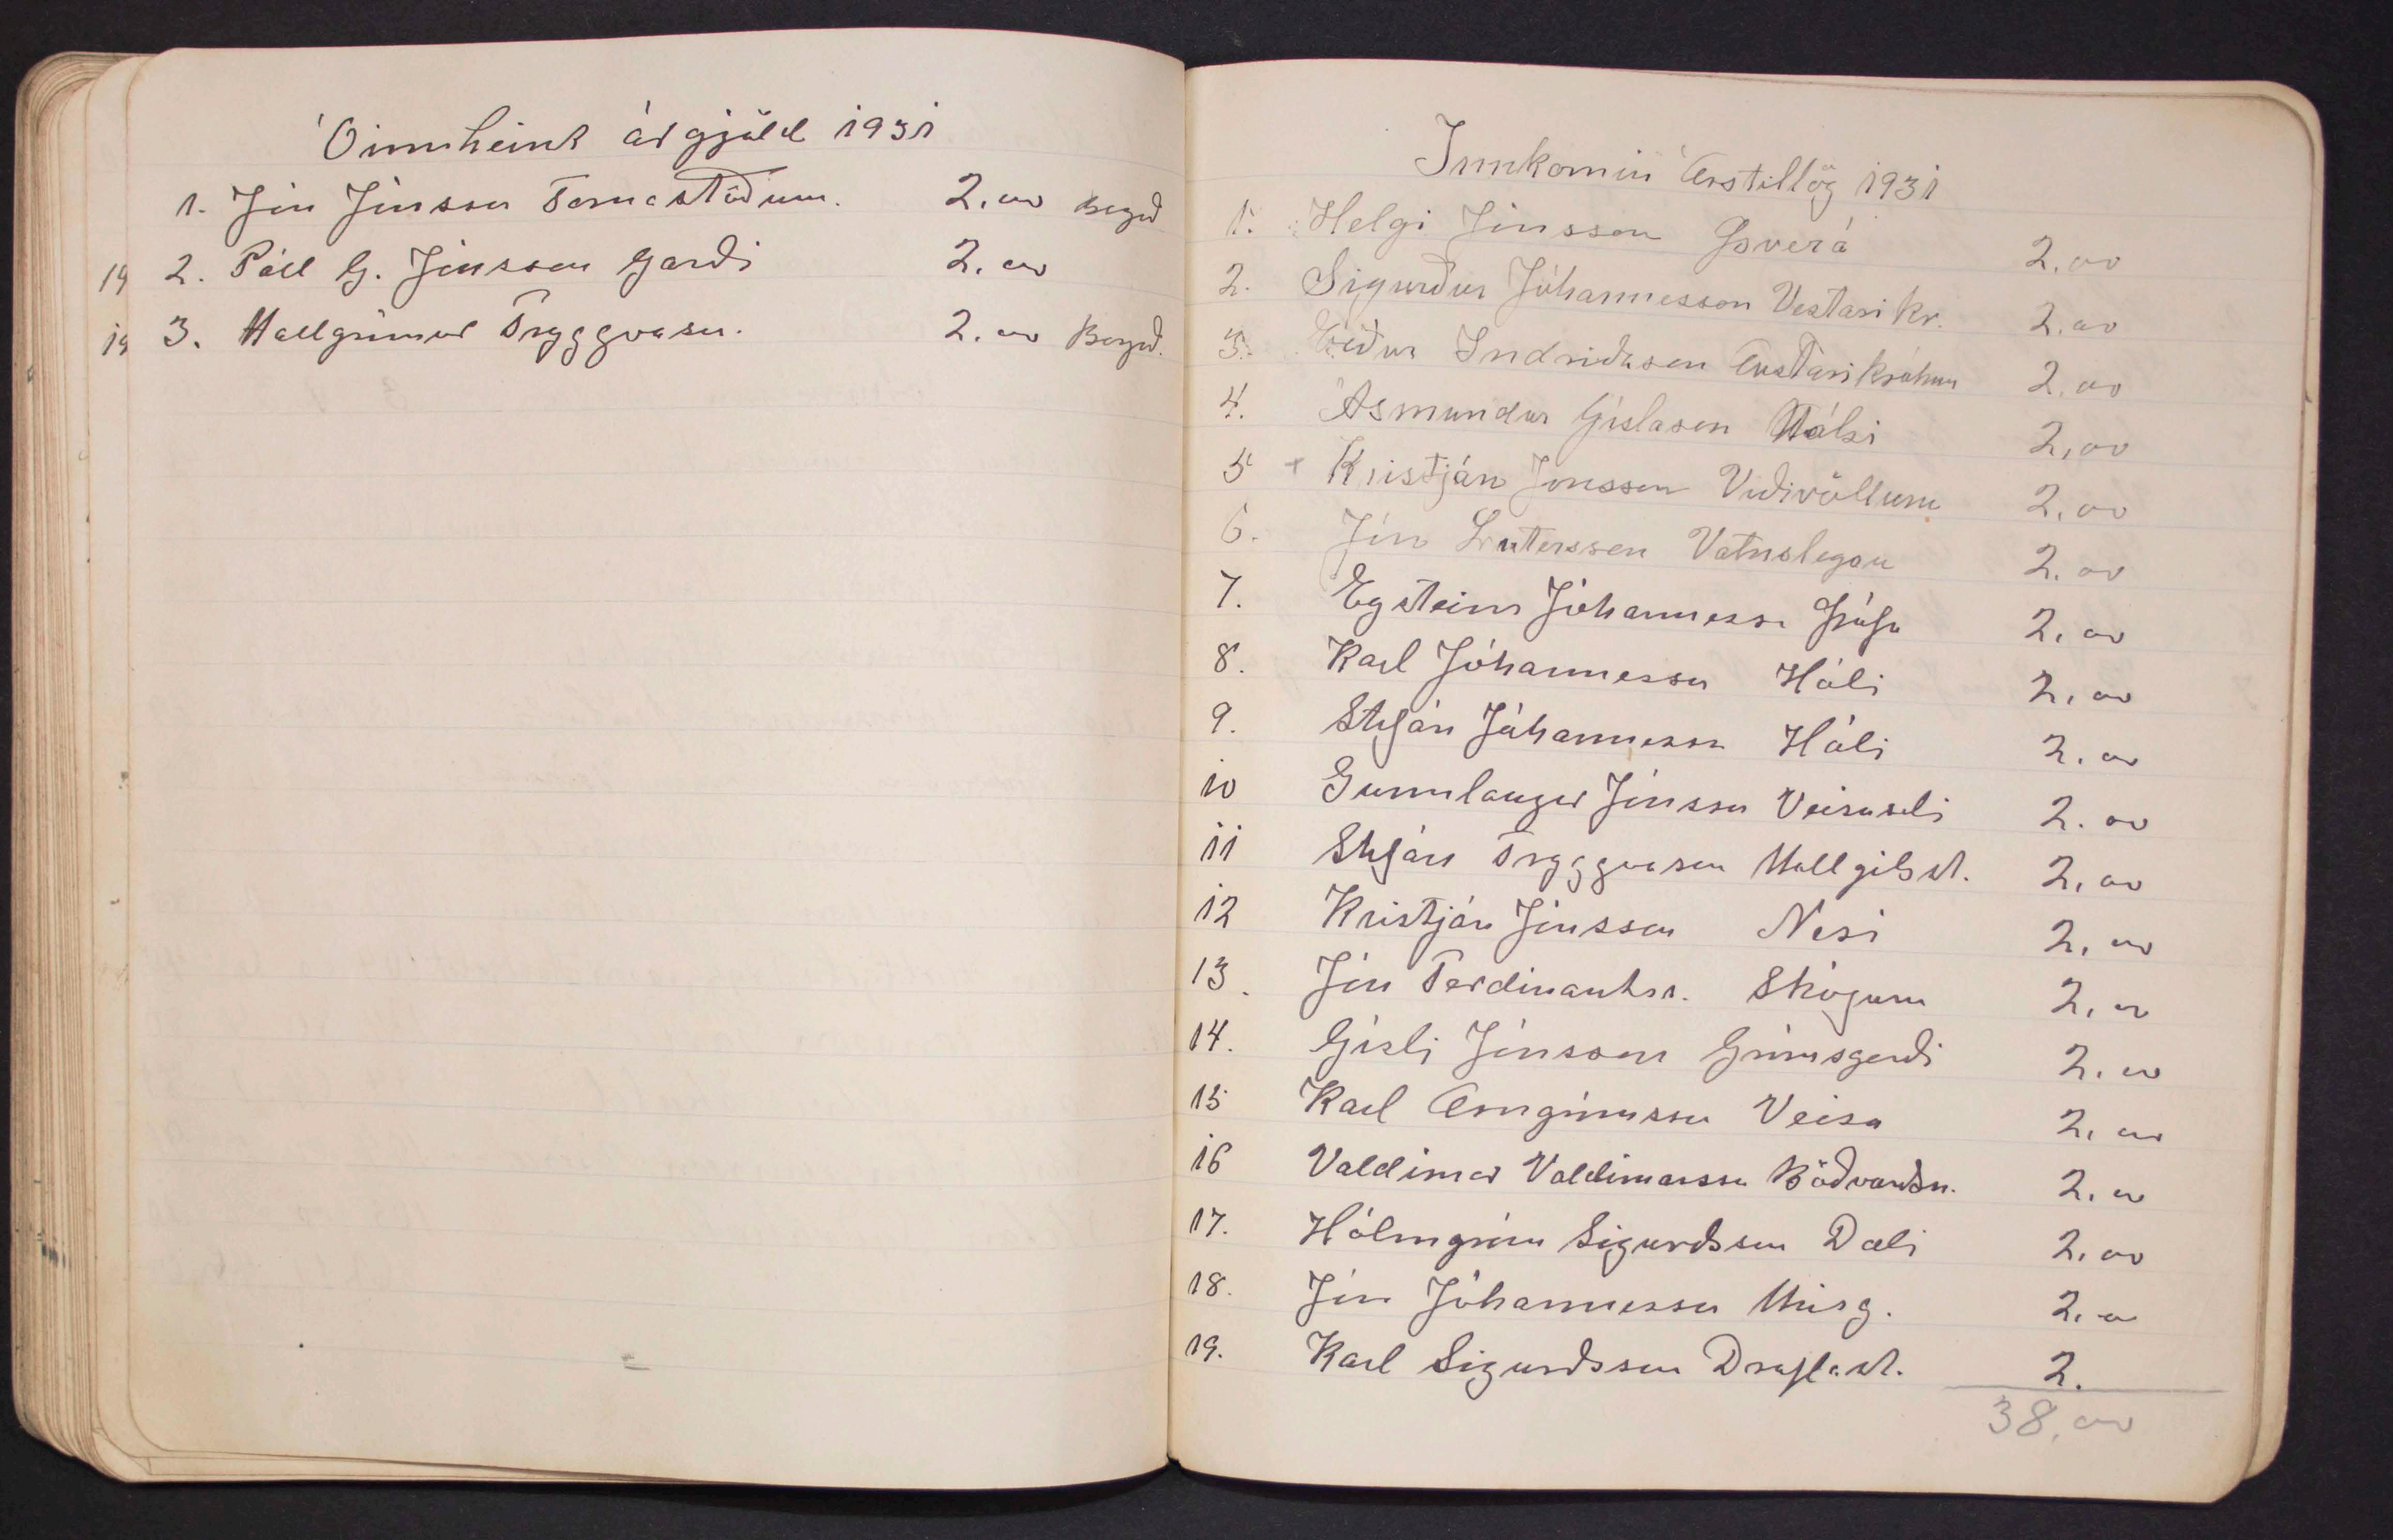 Óinnheimt árgjöld 1931
1. Jón Jónsson Fornastöðum. 2.00 Borgað
14 2. Páll G. Jónsson Garði 2.00
19 3. Hallgrímur Tryggvason. 2.00 Borgað.
Innkomin Árstillög 1931
1. Helgi Jónsson Þverá 2.00
2. Sigurður Jóhannesson Vestari kr. 2.00
3. Eiður Indriðason Austari króknum 2.00
4. Ásmundur Gíslason Hálsi 2,00
5 + Kristján Jónsson Víðivöllum 2.00
6. Jón Lutersson Vatnsleysu 2.00
7. Eysteinn Jóhannesson Þúfu 2.00
8. Karl Jóhannesson Hóli 2.00
9. Stefán Jóhannesson Hóli 2.00
10 Gunnlaugur Jónsson Veisuseli 2.00
11 Stefán Tryggvason Hallgilsst. 2.00
12 Kristján Jónsson Nesi 2.00
13. Jón Ferdinantsn. Skógum 2.00
14. Gísli Jónsson Grímsgerði 2.00
15 Karl Arngrímsson Veisa 2.00
16 Valdimar Valdimarsson Böðvarsn. 2.00
17. Hólmgrím Sigurðsson Dæli 2.00
18. Jón Jóhannesson 2.00
19. Karl Sigurðsson Draflast. 2.
38.00